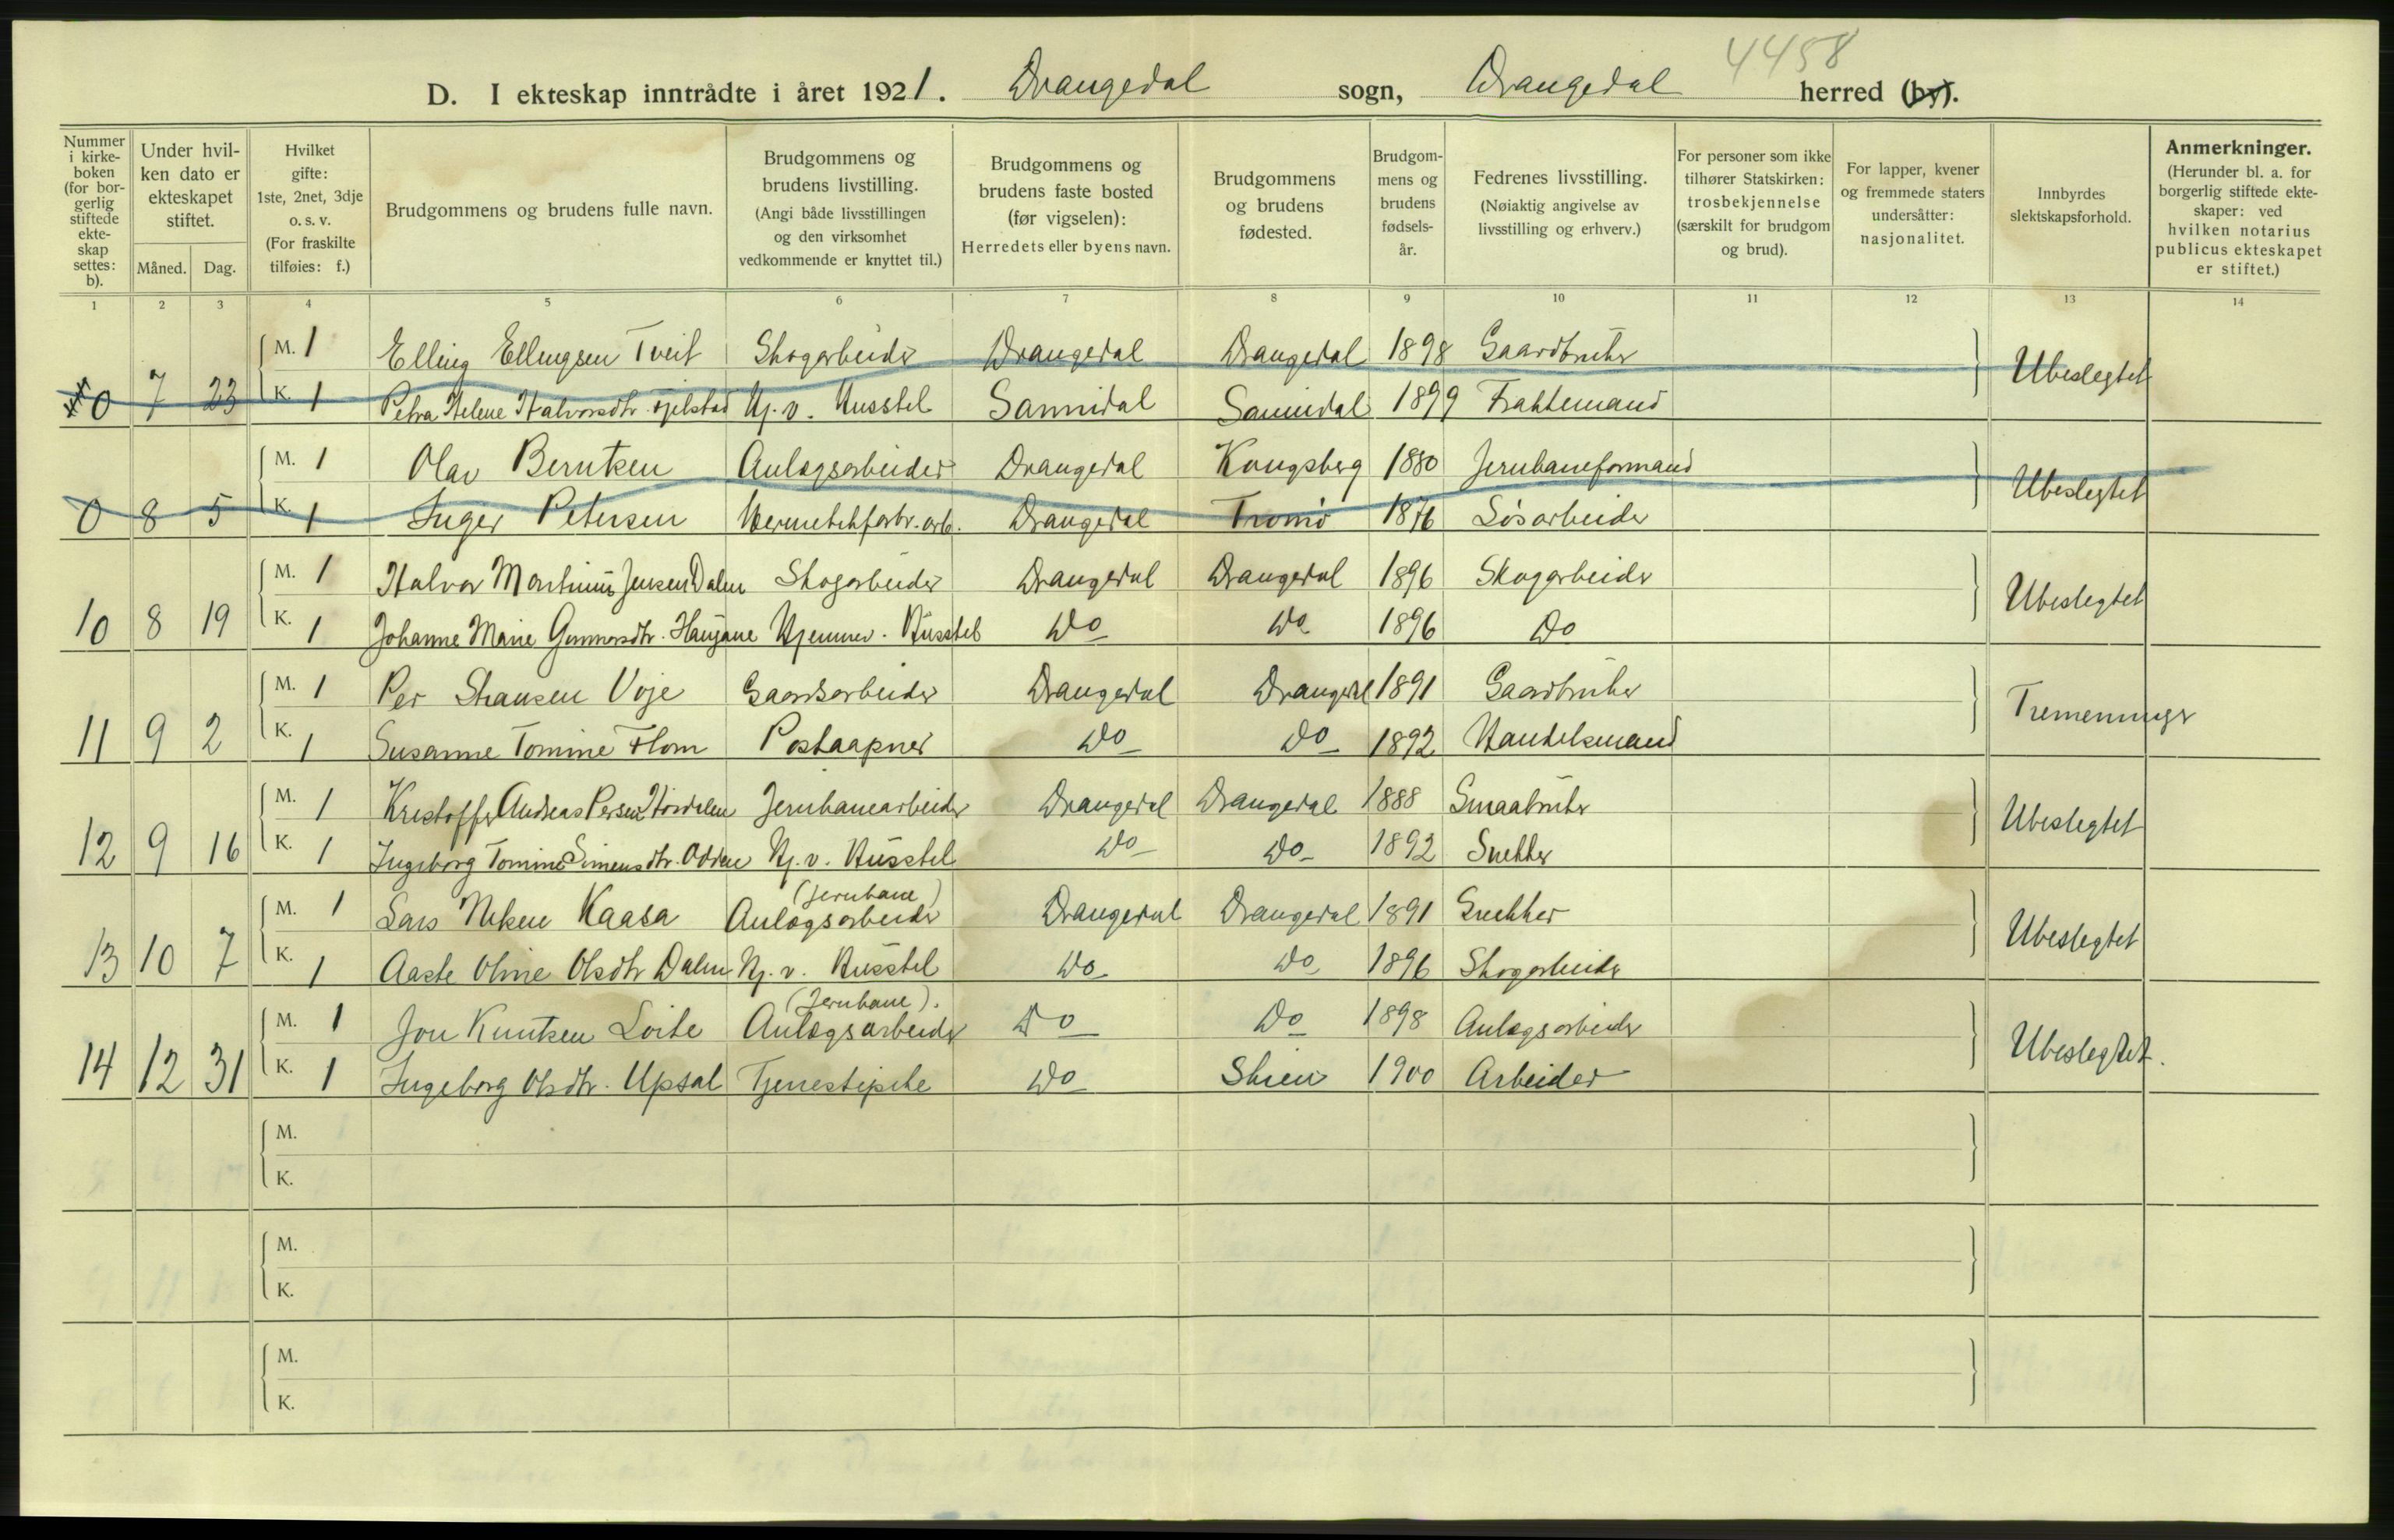 4458
D. I ekteskap inntrådte i året 1921. Drangedal sogn, Drangedal herred (by).
Nummer i kirkeboken (for borgerlig stiftede ekteskap settes: b).
Under hvilken dato er ekteskapet stiftet.
Måned. Dag.
Hvilket gifte: 1ste, 2net, 3dje o. s. v. (For fraskilte tilføies: f.)
Brudgommens og brudens fulle navn.
Brudgommens og brudens livstilling. (Angi både livsstillingen og den virksomhet vedkommende er knyttet til.)
Brudgommens og brudens faste bosted (før vigselen): Herredets eller byens navn.
Brudgommens og brudens fødested.
Brudgommens og brudens fødselsår.
Fedrenes livsstilling. (Nøiaktig angivelse av livsstilling og erhverv.)
For personer som ikke tilhører Statskirken: trosbekjennelse (særskilt for brudgom og brud).
For lapper, kvener og fremmede staters undersåtter: nasjonalitet.
Innbyrdes slektskapsforhold.
Anmerkninger. (Herunder bl. a. for borgerlig stiftede ekteskaper: ved hvilken notarius publicus ekteskapet er stiftet.)
1 2 3 4 5 6 7 8 9 10 11 12 13 14
M. 1 Elling Ellingsen Tveit Skogarbeider Drangedal Drangedal 1898 Gaardbruker Ubeslegtet
0 7 23 K. 1 Petra Helene Halvorsdtr. Hj. v. Husstel Sannidal Sannidal 1899 Fraktemand
M. 1 Olav Berntsen Anlægsarbeider Drangedal Kongsberg 1880 Jernbaneformand Ubeslegtet
0 8 5 K. 1 Inger Petersen Hermetikfabr. arb. Drangedal Tromø 1876 Løsarbeider
M. 1 Halvor Martinius Jensen Dalen Skogarbeider Drangedal Drangedal 1896 Skogarbeider Ubeslegtet
10 8 19 K. 1 Johanne Marie Gunnarsdtr. Haugane Hjemmev. Husstel Do Do 1896 Do
M. 1 Per Stiansen Voje Gaardsarbeider Drangedal Drangedal 1891 Gaardbruker Tremenninger
11 9 2 K. 1 Susanne Tomine Flom Postaapner Do Do 1892 Handelsmand
M. 1 Kristoffer Andreas Persen Hørdalen Jernbanearbeider Drangedal Drangedal 1888 Smaabruker Ubeslegtet
12 9 16 K. 1 Ingeborg Tomine Simensdtr. Odden Hj. v. Husstel Do Do 1892 Snekker
(Jernbane)
M. 1 Lars Nilsen Kaasa Anlægsarbeider Drangedal Drangedal 1891 Snekker Ubeslegtet
13 10 7 K. 1 Aaste Oline Olsdtr Dalen Hj. v. Husstel Do Do 1896 Skogarbeider
(Jernbane).
M. 1 Jon Knutsen Loite Anlægsarbeider Do Do 1898 Anlægsarbeider Ubeslegtet.
14 12 31 K. 1 Ingeborg Olsdtr. Upsal Tjenestepike Do Skien 1900 Arbeider
M.
K.
M.
K.
M.
K.